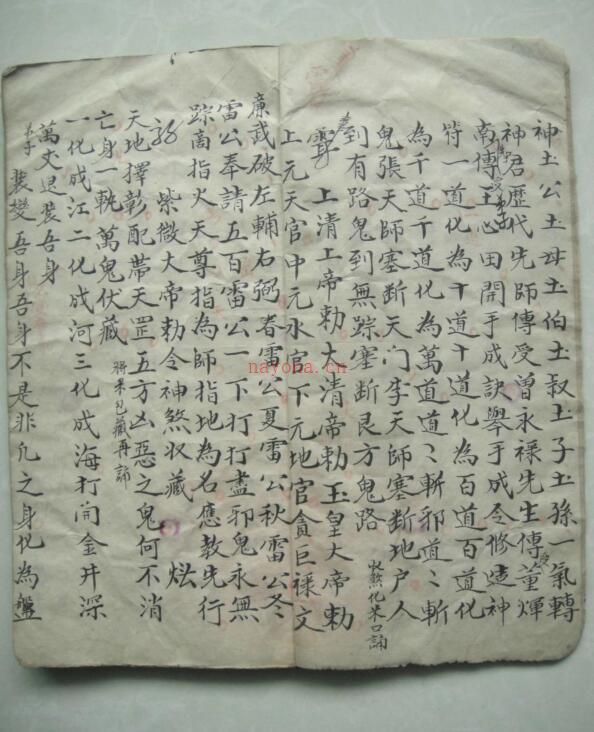 神土公土母土伯土叔土子土孫一氣轉
神君歷代先師傳受曾永祿先生傳董煇
南傳王心田開手成訣舉手成令修造神
符一道化為十道十道化為百道百道化
為千道千道化為萬道道〻斬邪道〻斬
鬼張天師塞斷天门李天師塞斷地户人
到有路鬼到無踪塞斷艮方鬼路
收煞化米口誦
上清上帝勅大清帝勅玉皇大帝勅
上元天官中元水官下元地官貪巨祿文
廉武破左輔右弼春雷公夏雷公秋雷公冬
雷公奉請五百雷公一下打打盡邪鬼永無
踪高指火天尊指為師指地為名應教先行
紫微大帝勅令神煞収藏
天地擇彰配帶天罡五方凶惡之鬼何不消
亡身一軌萬鬼伏藏
将米包藏再誦
一化成江二化成河三化成海打開金井深
萬丈退裝吾身
弟子裝變吾身吾身不是非凢之身化為盤
nayona.cn